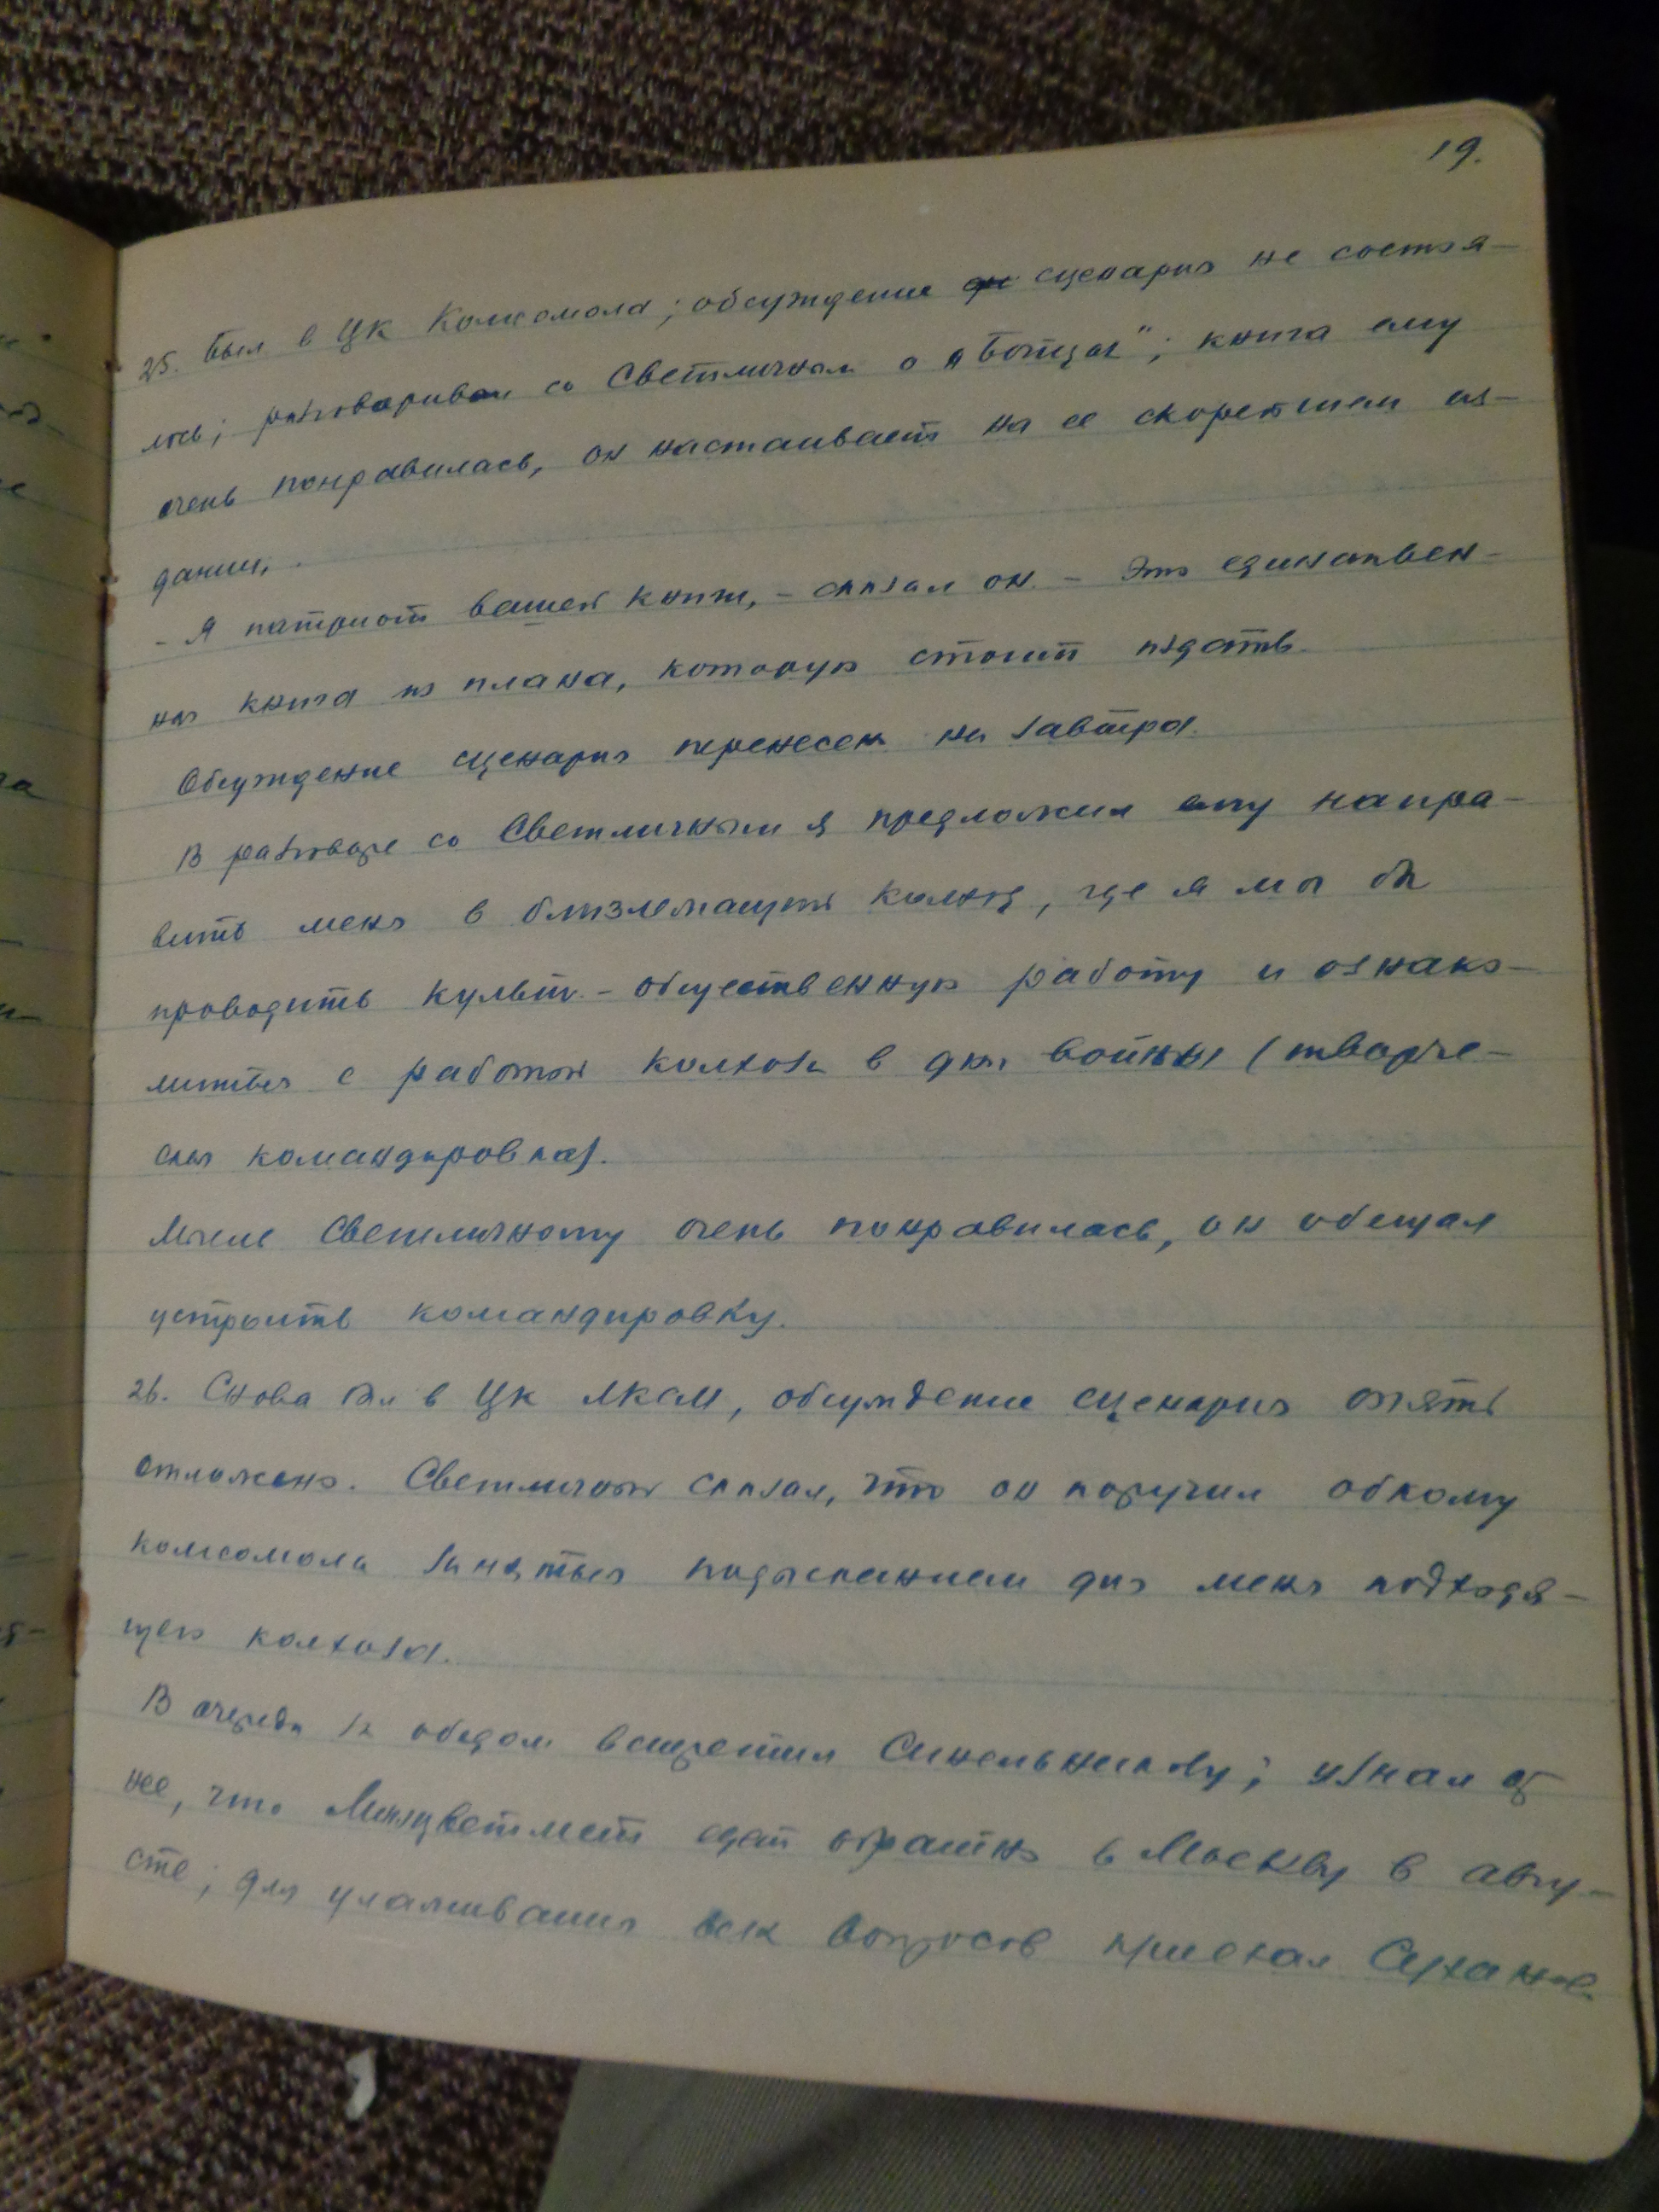 19.
25. Был в ЦК Комсомола; обсуждение сценария не состоя-
лось; разговаривал со Светличным о „Бойцах"; книга ему
очень понравилась, он настаивает на ее скорейшем из-
дании.
- Я патриот вашей книги, - сказал он. - Это единствен-
ная книга из плана, которую стоит издать.
Обсуждение сценария перенесено на завтра.
В разговоре со Светличным я предложил ему напра-
вить меня в близлежащий колхоз, где я мог бы
проводить культ.-общественную работу и ознако-
миться с работой колхоза в дни войны (творче-
ская командировка).
Мысль Светличному очень понравилась, он обещал
устроить командировку.
26. Снова был в ЦК ЛКСМ, обсуждение сценария опять
отложено. Светличный сказал, что он поручил обкому
комсомола заняться подысканием для меня подходя-
щего колхоза.
В очереди за обедом встретил Синельникову; узнал от
нее, что Минцветмет едет обратно в Москву в авгу-
сте; для улаживания всех вопросов приехал